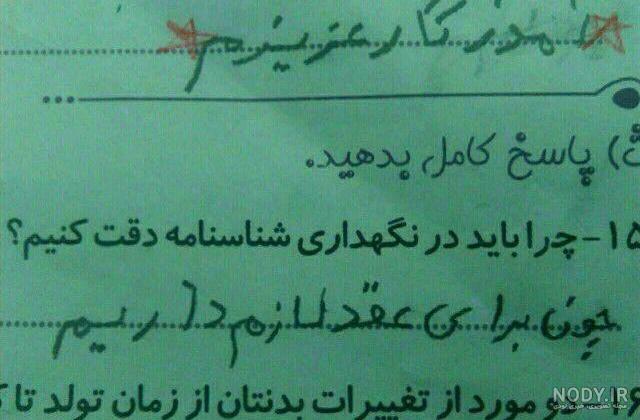 مادر کار عزیزم
ث) پاسخ کامل بدهید.
۱۵- چرا باید در نگهداری شناسنامه دقت کنیم؟
چون برای عقد لازم داریم
و مورد از تغییرات بدنتان از زمان تولد تا
NODY.IR